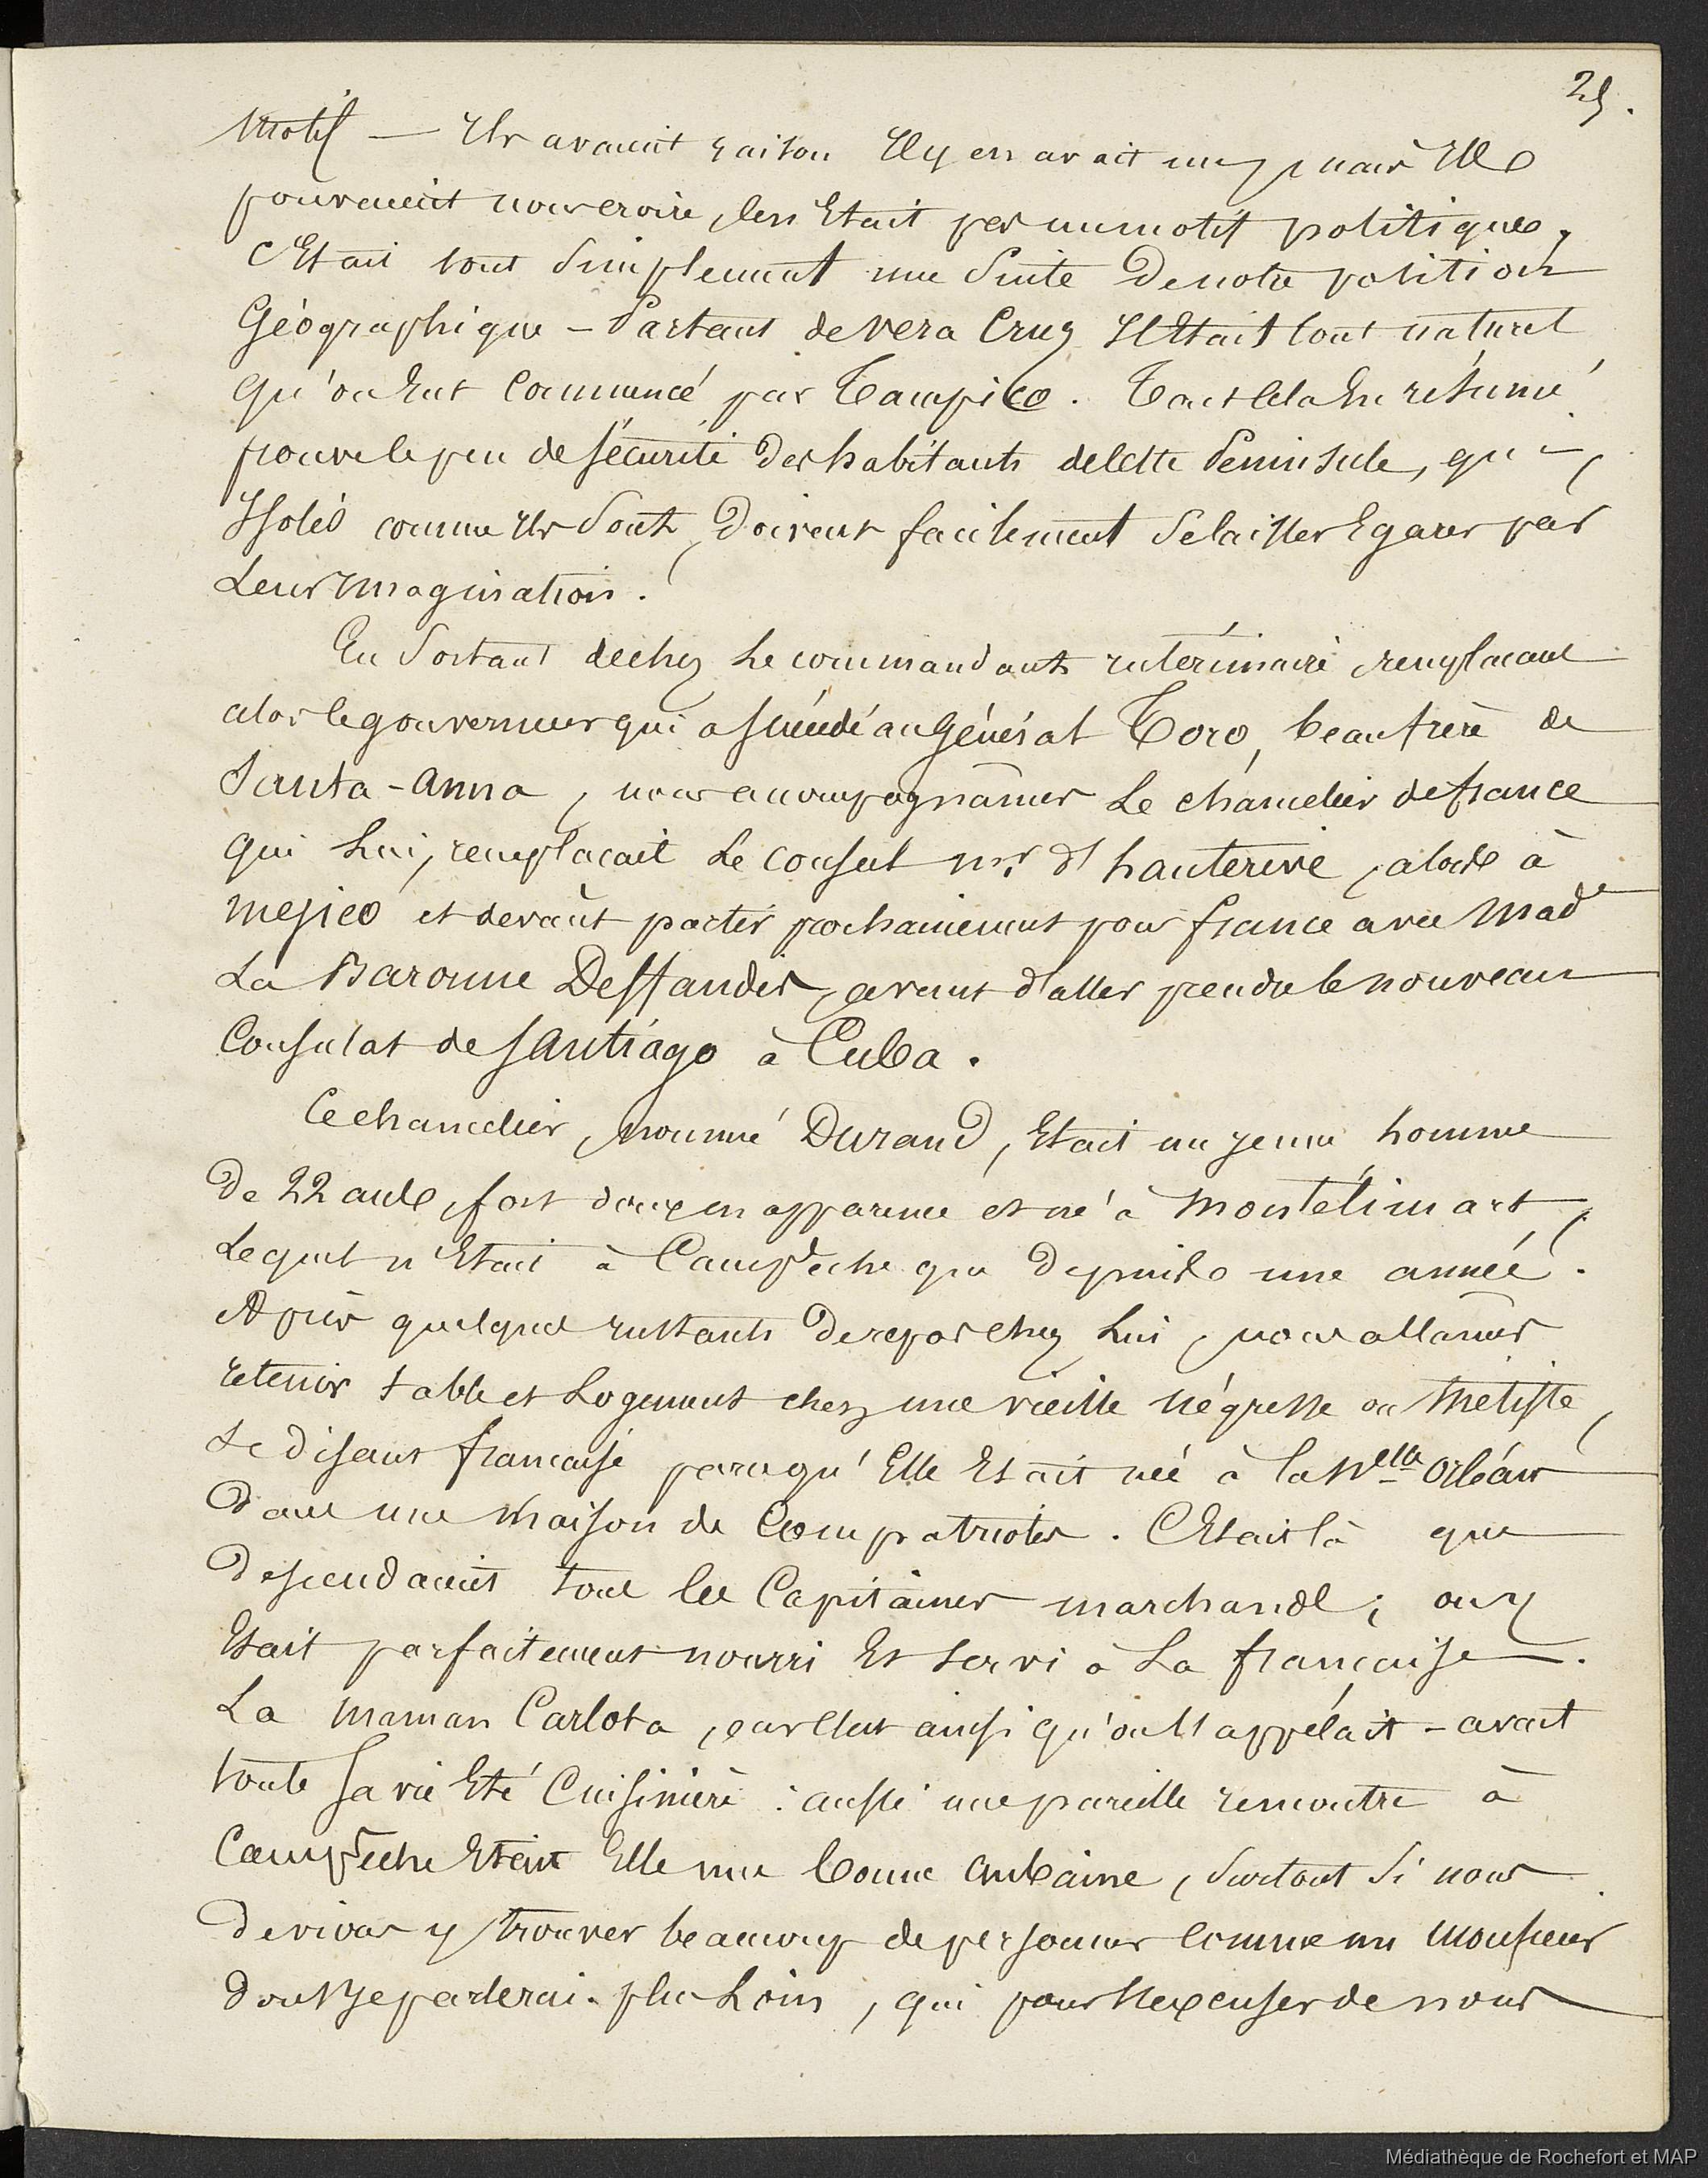 25.
motif — Ils avaient raison Il y en avait un, mais Ils
pouvaient nous croire, Cen Etait pas un motif politique,
C Etait tout Simplement une Suite De notre position
Géographique – Partant de Vera Cruz Il Etait tout naturel
qu'on Eut Commencé par Tampico. Tout Cela En résumé
prouve le peu de sécurité des habitants de Cette Péninsule, qui,
Isolés comme Ils Sont, Doivent facilement Se laisser Egarer par
Leur Imagination.
En Sortant de chez Le commandant intérimaire remplacant
alors le gouverneur qui a succédé au Général Toro, beaufrère de
Santa-Anna, nous accompagnâmes Le chancelier de france
qui Lui, remplacait Le Consul Mr. d'hauterive, alors à
Mejico et devant partir prochainement pour france avec Made
La Baronne Deffandis, avant d'aller prendre le nouveau
Consulat de santiago à Cuba.
Ce chancelier, nommé Durand, Etait un jeune homme
De 22 ans, fort doux en apparence et né à Montélimart,
Lequel n'Etait à Campêche que Depuis une année.
Après quelques Instants De repos chez Lui, nous allâmes
retenir table et Logement chez une vieille négresse ou Métisse,
se disant francaise parcequ'Elle Etait née à la Nelle Orléans
Dans une Maison de Compatriotes. C Etait là que
Descendaient tous les Capitaines marchands; on y
Etait parfaitement nourri Et servi à La francaise.
La maman Carlota, car C'est ainsi qu'on l'appélait – avait
toute sa vie Eté Cuisinière : aussi une pareille rencontre à
Campêche Etait Elle une bonne aubaine, Surtout Si nous
Devions y trouver beaucoup de personnes comme un Monsieur
dont Je parlerai plus Loin, qui pour s'excuser de nous
Médiathèque de Rochefort et MAP